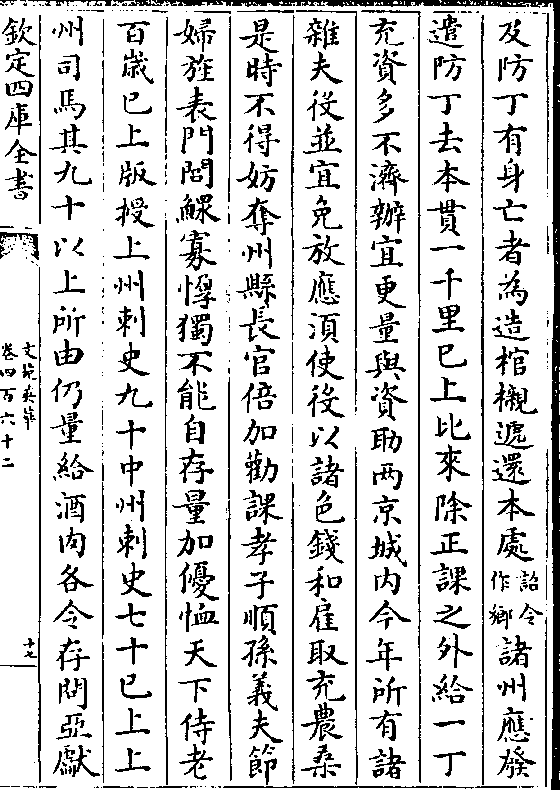 及防丁有身亡者為造棺櫬遞還本處詔令作鄉諸州應發
遣防丁去本貫一千里已上比來除正課之外給一丁
充資多不濟辦宜更量與資助两京城内今年所有諸
雜夫役並宜免放應須使役以諸色錢和雇取充農桑
是時不得妨奪州縣長官倍加勸課孝子順孫義夫節
婦旌表門閭鰥寡惸獨不能自存量加優恤天下侍老
百歲已上版授上州刺史九十中州刺史七十已上上
州司馬其九十以上所由仍量給酒肉各令存問亞獻
欽定四庫全書
文苑英華
卷四百六十二
十五